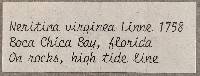 Neritina virginea Linne. 1758
Boca Chica Bay, florida
On rocks, high tide line